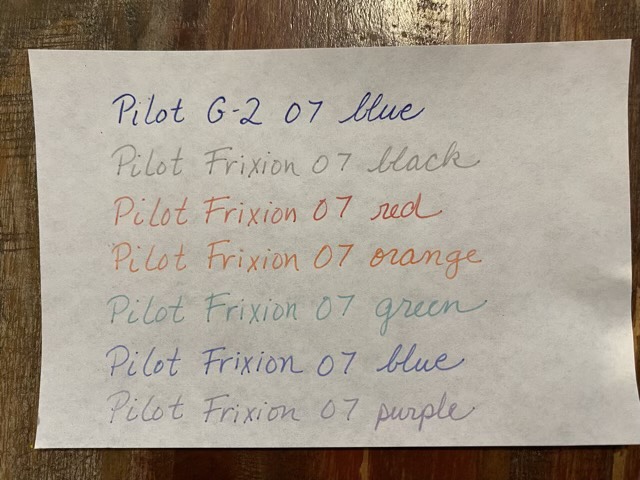 Pilot G-2 07 blue
Pilot Frixion 07 black
Pilot Frixion 07 red
Pilot Frixion 07 orange
Pilot Frixion 07 green
Pilot Frixion 07 blue
Pilot Frixion 07 purple